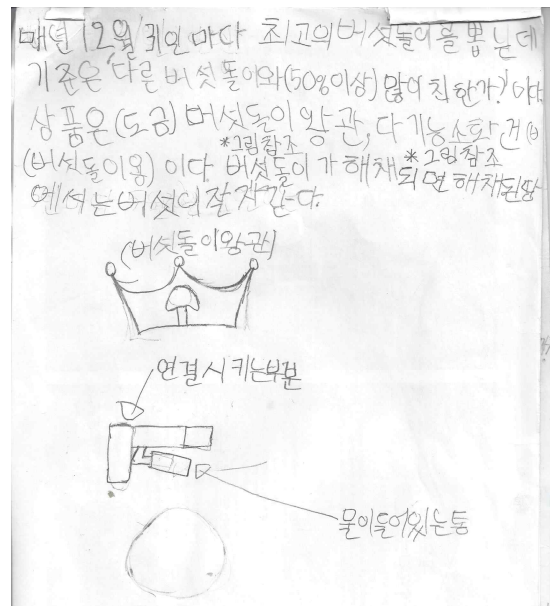 매년 12월 귀인 마다 최고의 버섯돌이를 뽑는데
기준은 다른 버섯돌이와(50명이상) 많이 친한가? 이다.
상품은(도금) 버섯돌이왕관, 다기능소화건
*그림참조
*그림참조
(버섯돌이용) 이다. 버섯돌이가 해채되면 해채된땅
에서는 버섯이 잘 자란다.
(버섯돌이왕관)
연결시키는부분
물이들어있는통